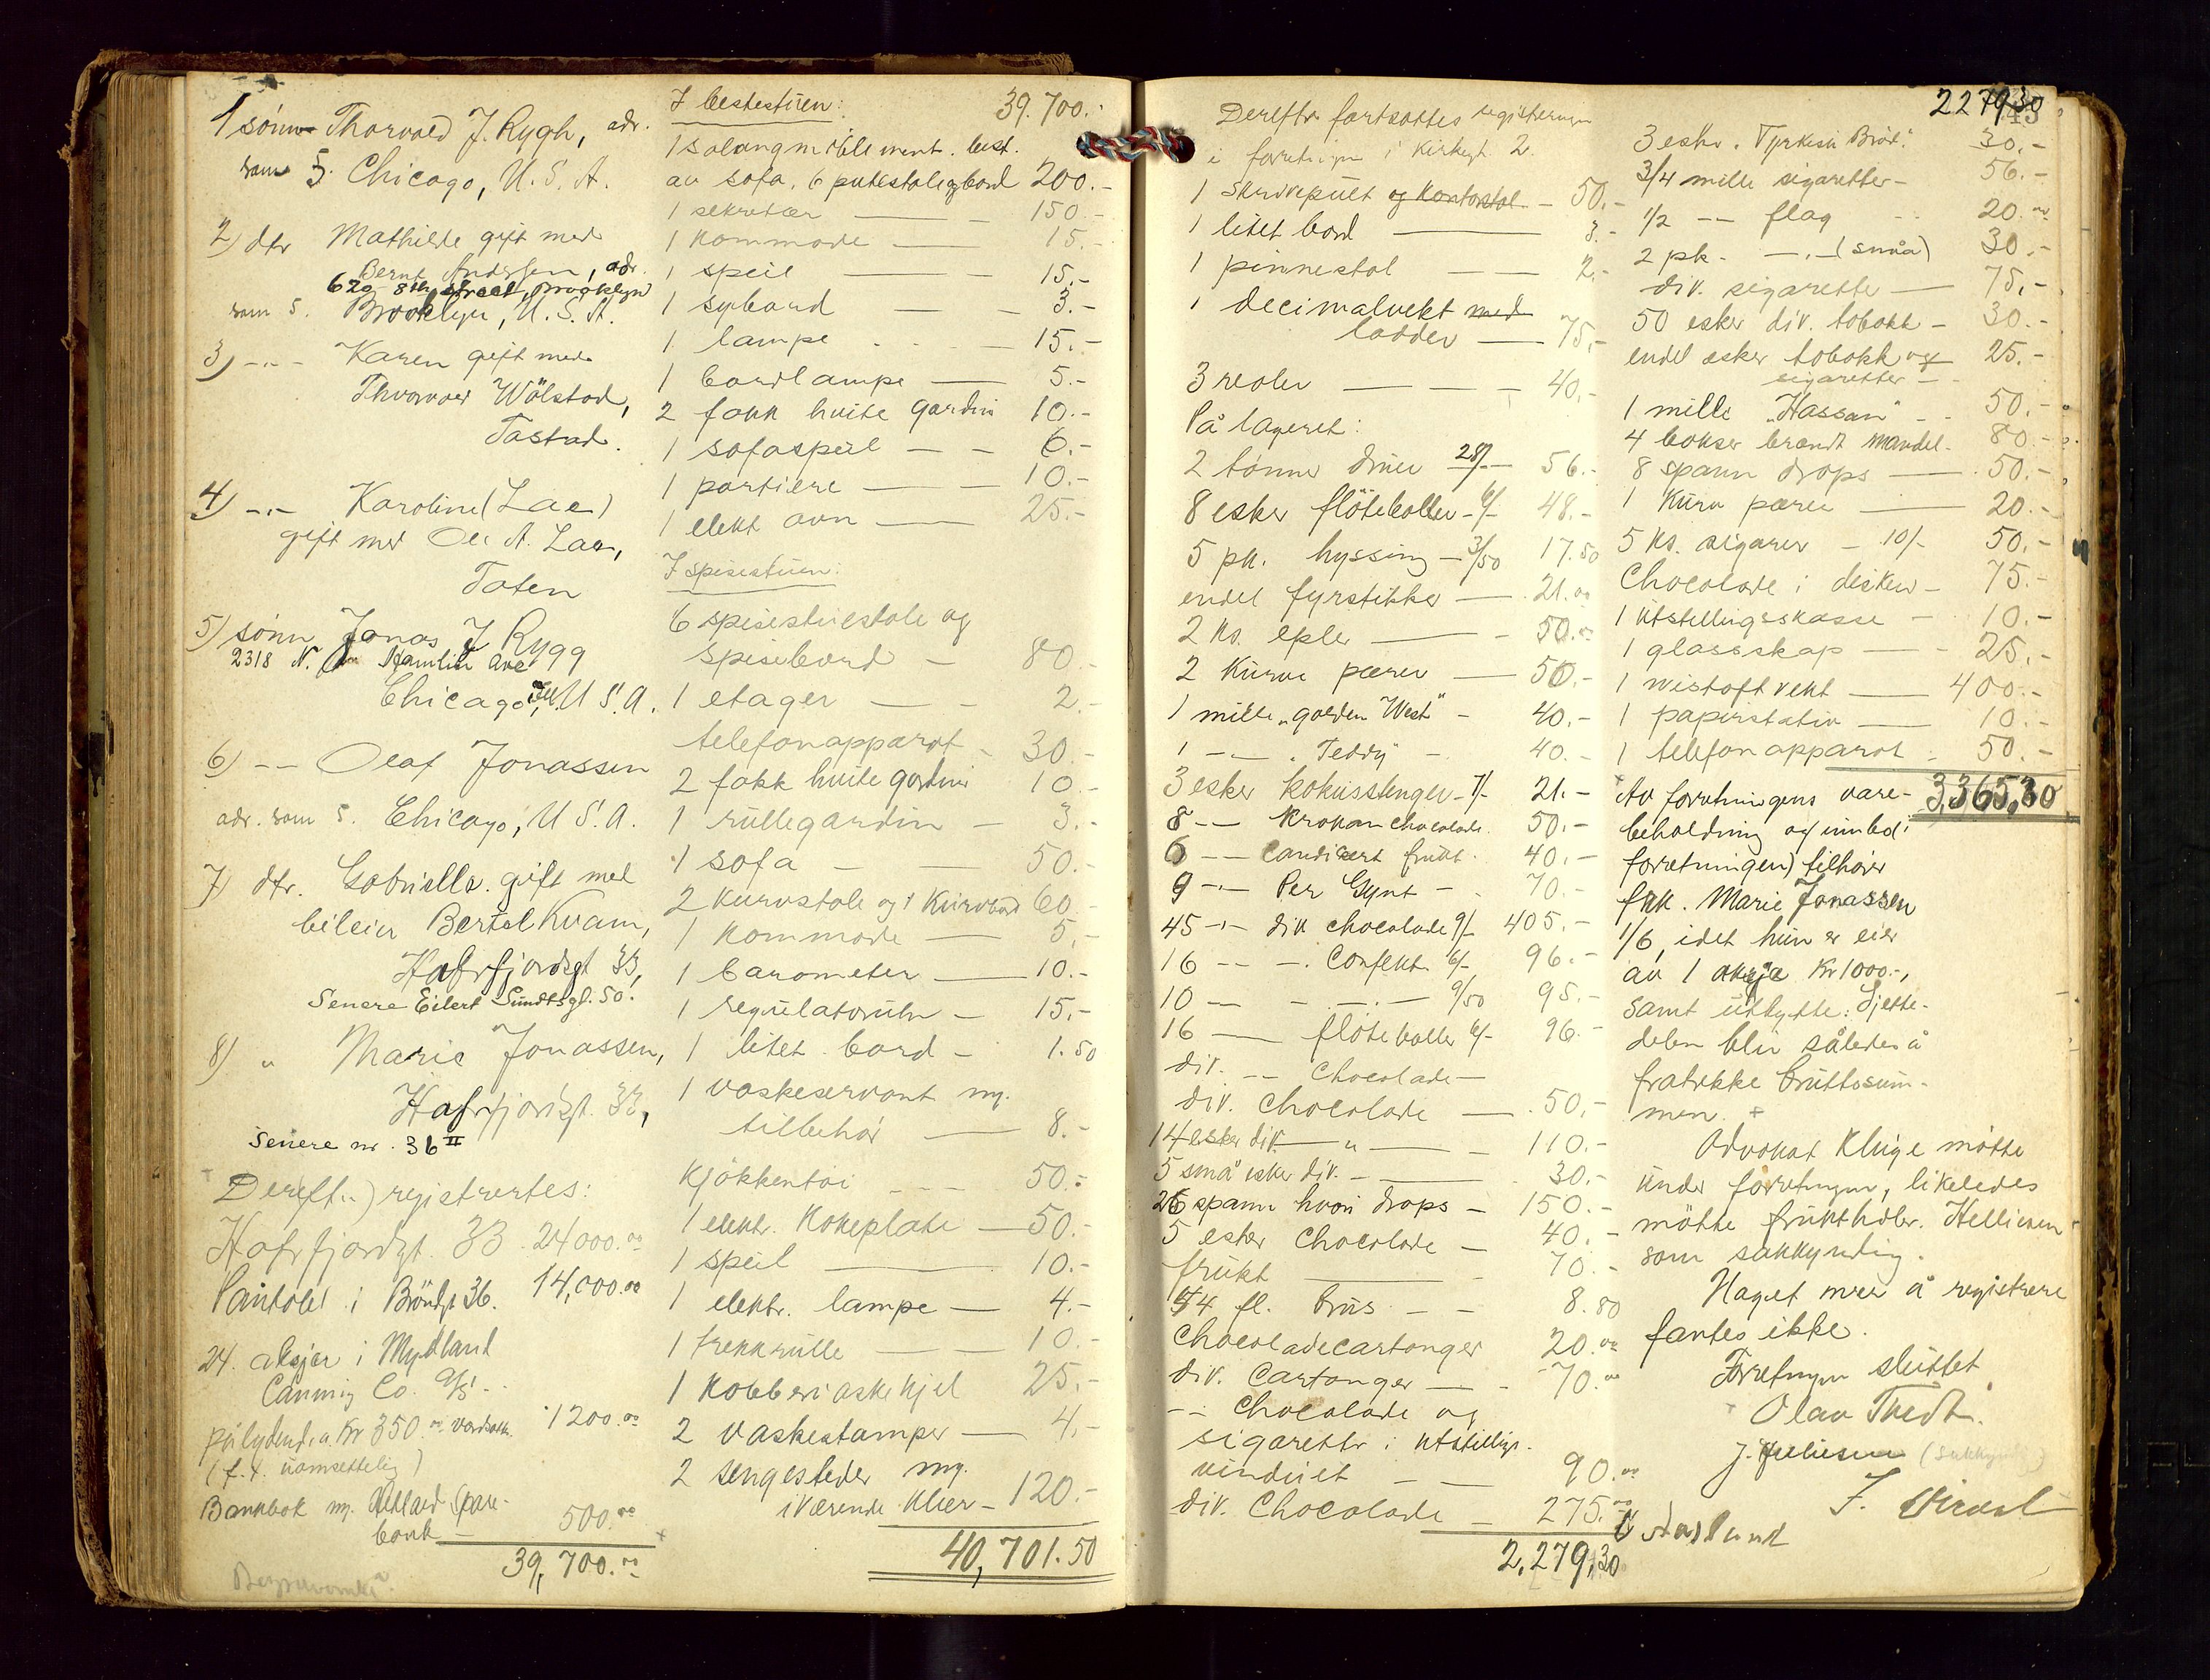 1 sønn Thorvald J. Rygh, adr.
som 5. Chicago, U.S.A.
2) dtr Mathilde gift med
Bernt Andersen, adr.
629 8th street, Brooklyn
som 5. Brooklyn, U.S.A.
3) -"- Karen gift med
Wölstad,
Tastad.
4) -"- Karoline (Laa)
gift med Ole A. Laa,
Toten
5) sønn Jonas J Rygg
2318 N. Hamlin Ave
Chicago, Ill. U S. A.
6) -- Olaf Jonassen
adr. som 5. Chicago, U S. A.
7) dtr. Gabriella gift med
bileier Bertel Kvam,
Hafrsfjordgt 33,
Senere Eilert Sundtsgt. 50.
8) " Marie Jonassen,
Hafrsfjordgt. 33,
Senere nr. 36 II
Dereft..) registrertes:
Hafrsfjordgt. 33. 24000.00
Pantobl i Bröndgt 36. 14,000.00
24. aksjer i Mydland
Canning Co. A/S
pålydende a. Kr 350.00 1200.00
(f.t. uomsettelig)
Bankbok
bank — 500.00
39,700.00
I bestestuen: 39.700.-
1 salongmøblement. best.
av sofa, 6 putestole og bord 200.-
1 sekretær — 150.-
1 kommode — 15.-
1 speil — 15.-
1 sybord — 3.-
1 lampe — 15.-
1 bordlampe — 5.-
2 fakk hvite gardin 10.-
1 sofaspeil — 6.-
1 portiere — 10.-
1 elekt ovn — 25.-
I spisestuen:
6 spisestuestole og
spisebord — 80.-
1 etager — 2.-
telefonapparat - 30.-
2 fakk hvite gardini 10.-
1 rullegardin — 3.-
1 sofa — 50.-
2 kurvstole og 1 kurvbord 60.-
1 kommode — 5.-
1 barometer — 10.-
1 regulatoruhr — 15.-
1 litet bord - 1.50
1 vaskeservant m.
tilbehör — 8.-
Kjökkentöi — 50.-
1 elektr. Kokeplate — 50.-
1 speil — 10.-
1 elektr. lampe — 4.-
1 trekkrulle — 10.-
1 kobbervaskekjel 25.-
2 vaskestamper — 4.-
2 sengesteder m.
iværende klær - 120.-
40,701.50
Derefter fortsattes registreringen
i forretningen i Kirkegt. 2.
1 skrivepult og kontorstol - 50.-
1 litet bord — 3.-
1 pinnestol — 2.-
1 decimalvekt med
lodder — 75.-
3 reoler — 40.-
På lageret:
2 tönner druer 28/- 56.-
8 esker flöteboller - 6/- 48.-
5 pk. hyssing - 3/50 17.50
endel fyrstikker — 21.00
2 ks. epler — 50.00
2 kurve pærer — 50.-
1 mille „golden West" - 40.-
1 -"- „Teddy" - 40.-
3 esker kokusstenger - 7/- 21.-
8 -- Krokan chocolade. 50.-
6 -- Candisert frukt. 40.-
9 -"- Per Gynt - 70.-
45 -"- div chocolade 9/- 405.-
16 -- -. Confekt 6/- 96.-
10 -- -.- 9/50 95.-
16 — flöteboller 6/- 96.-
div. -- Chocolade —
div. Chocolade — 50.-
14 esker div. — " — 110.-
5 små esker div. — 30.-
26 spann hvori drops - 150.-
5 esker Chocolade - 40.-
frukt — 70.-
44 fl. brus - - 8.80
Chocoladecartonger 20.00
div. Cartonger — 70.00
-- Chocolade og
sigaretter i utstillings-
vinduet — 90.00
div. Chocolade — 275.00
2,279.30
43
2279.30
3 eskr. Tyrkisk Bröd. 30.-
3/4 mille sigaretter - 56.-
1/2 -- flag 20.00
2 pk. -.- (små) 30.-
div. sigaretter — 75.-
50 esker div. tobakk - 30.-
endel esker tobakk og 25.-
sigaretter -
1 mille „Hassan" - 50.-
4 bokser brændt mandel. 80.-
8 spann drops — 50.-
1 kurv pærer — 20.-
5 ks. sigarer - 10/- 50.-
Chocolade i disken - 75.-
1 utstillingskasse - 10.-
1 glassskap — 25.-
1 wistoft vekt — 400.-
1 papirstativ — 10.-
1 telefonapparat - 50.-
3,365,30
Av forretningens vare-
beholdning og innbo i
forretningen) tilhører
frk. Marie Jonassen
1/6, idet hun er eier
av 1 aksje Kr 1000.-,
samt utbytte. Sjette-
delen blir således å
fratrekke bruttosum-
men. +
Advokat Kluge mötte
under forretningen, likeledes
mötte frukthdlr. Helliesen
som sakkyndig.
Noget mer å registrere
fantes ikke.
Forretningen sluttet
Olav Thedt.
J. Helliesen (Sakkyndig)